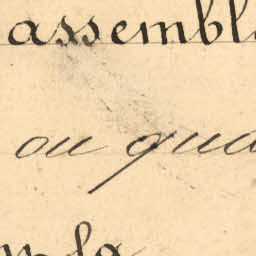 assembl
ou qua